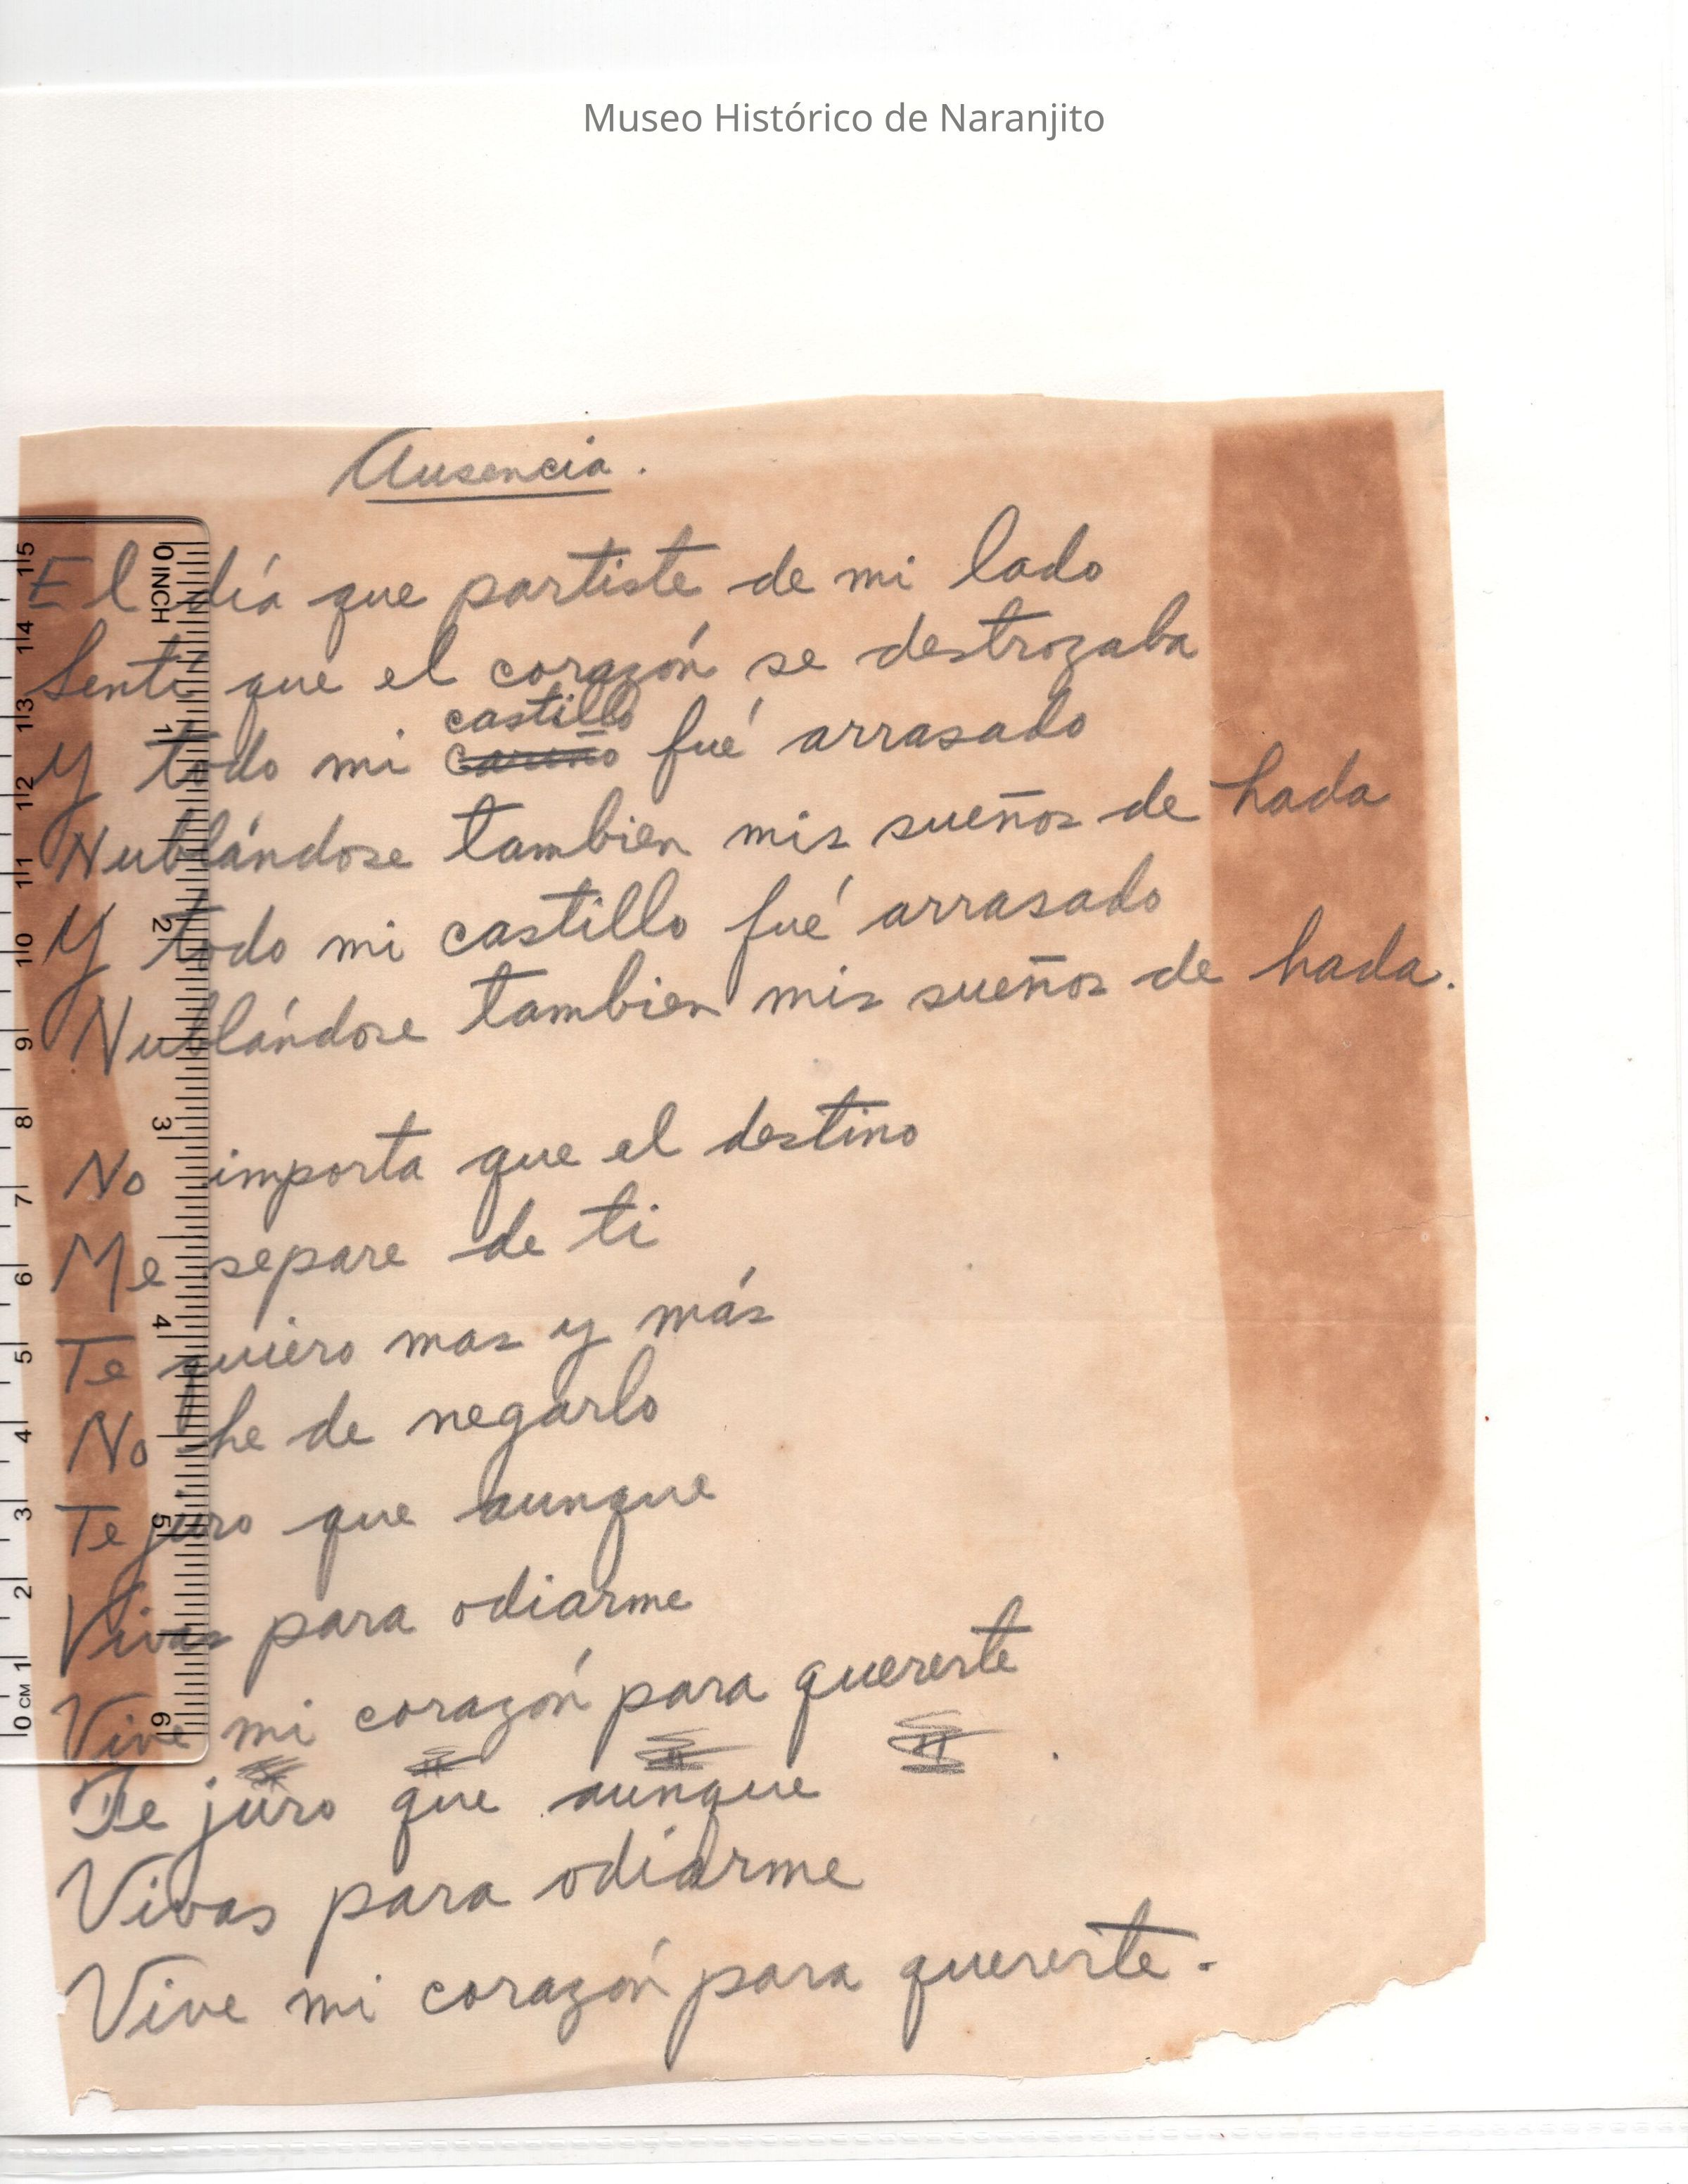 Museo Histórico de Naranjito
Ausencia.
El día que partiste de mi lado
Sentí que el corazón se destrozaba
castillo
Y todo mi cariño fué arrasado
Nublándose tambien mis sueños de hada
Y todo mi castillo fué arrasado
Nublándose tambien mis sueños de hada.
No importa que el destino
Me separe de ti
Te quiero mas y más
No he de negarlo
Te juro que aunque
Vivas para odiarme
Vive mi corazón para quererte
Te juro que aunque
Vivas para odiarme
Vive mi corazón para quererte.
0 INCH 1 2 3 4 5 6
0 CM 1 2 3 4 5 6 7 8 9 10 11 12 13 14 15